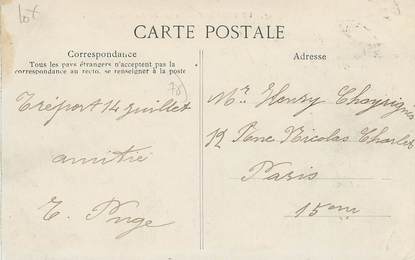 lot
CARTE POSTALE
Correspondance
Tous les pays étrangers n'acceptent pas la
correspondance au recto, se renseigner à la poste
Adresse
Tréport 14 Juillet
amitié
Mr. Henry
12 Rue Nicolas Charlet
Paris
15eme